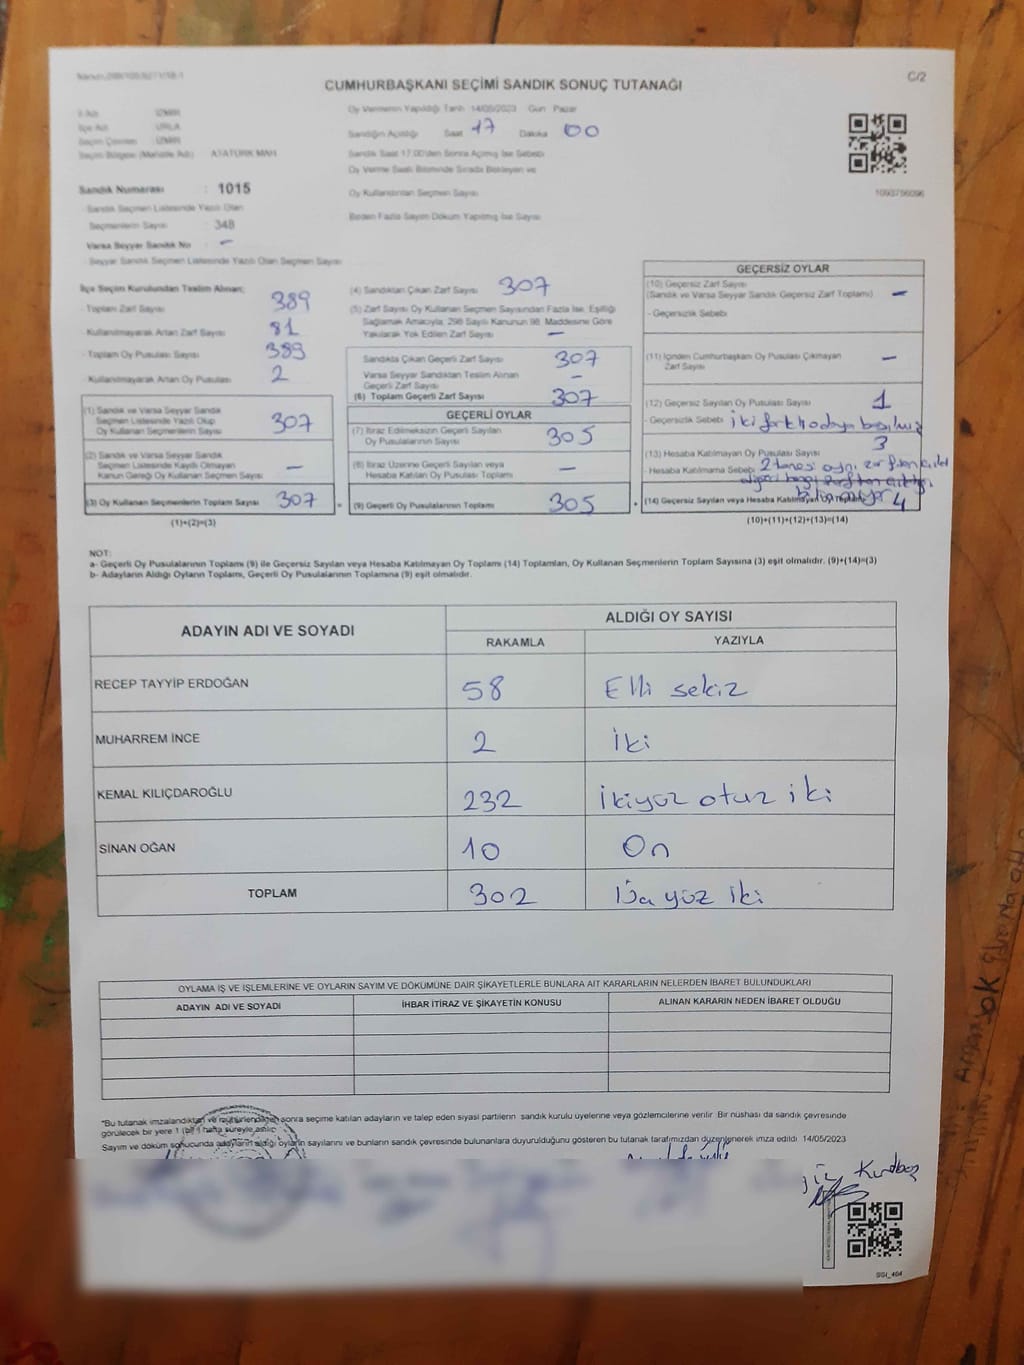 CUMHURBAŞKANI SEÇİMİ SANDIK SONUÇ TUTANAĞI
C/2
Oy Vermenin Yapıldığı Tarih 14/05/2023 Gün Pazar
Sandığın Açıldığı Saat 17 Dakika 00
Sandık Saat 17.00'den Sonra Açılmış İse Sebebi
Oy Verme Saati Bitiminde Sırada Bekleyen ve
Oy Kullandırılan Seçmen Sayısı
Birden Fazla Sayım Döküm Yapılmış İse Sayısı
İl Adı İZMİR
İlçe Adı URLA
Seçim Çevresi İZMİR
Seçim Bölgesi (Mahalle Adı) ATATÜRK MAH
Sandık Numarası : 1015
Sandık Seçmen Listesinde Yazılı Olan
Seçmenlerin Sayısı : 348
Varsa Seyyar Sandık No : -
Seyyar Sandık Seçmen Listesinde Yazılı Olan Seçmen Sayısı
İlçe Seçim Kurulundan Teslim Alınan;
- Toplam Zarf Sayısı 389
- Kullanılmayarak Artan Zarf Sayısı 81
- Toplam Oy Pusulası Sayısı 389
- Kullanılmayarak Artan Oy Pusulası 2
(1) Sandık ve Varsa Seyyar Sandık
Seçmen Listesinde Yazılı Olup
Oy Kullanan Seçmenlerin Sayısı 307
(2) Sandık ve Varsa Seyyar Sandık
Seçmen Listesinde Kayıtlı Olmayan
Kanun Gereği Oy Kullanan Seçmen Sayısı -
(3) Oy Kullanan Seçmenlerin Toplam Sayısı 307 =
(1)+(2)=(3)
(4) Sandıktan Çıkan Zarf Sayısı 307
(5) Zarf Sayısı Oy Kullanan Seçmen Sayısından Fazla İse, Eşitliği
Sağlamak Amacıyla, 298 Sayılı Kanunun 98. Maddesine Göre
Yakılarak Yok Edilen Zarf Sayısı -
Sandıkta Çıkan Geçerli Zarf Sayısı 307
Varsa Seyyar Sandıktan Teslim Alınan
Geçerli Zarf Sayısı -
(6) Toplam Geçerli Zarf Sayısı 307
GEÇERLİ OYLAR
(7) İtiraz Edilmeksizin Geçerli Sayılan
Oy Pusulalarının Sayısı 305
(8) İtiraz Üzerine Geçerli Sayılan veya
Hesaba Katılan Oy Pusulalarının Toplamı -
(9) Geçerli Oy Pusulalarının Toplamı 305 +
GEÇERSİZ OYLAR
(10) Geçersiz Zarf Sayısı
(Sandık ve Varsa Seyyar Sandık Geçersiz Zarf Toplamı) -
- Geçersizlik Sebebi
(11) İçinden Cumhurbaşkanı Oy Pusulası Çıkmayan
Zarf Sayısı -
(12) Geçersiz Sayılan Oy Pusulası Sayısı 1
- Geçersizlik Sebebi iki farklı adaya basılmış
(13) Hesaba Katılmayan Oy Pusulası Sayısı 3
- Hesaba Katılmama Sebebi 2 tanesi aynı zarftan
(14) Geçersiz Sayılan veya Hesaba Katılmayan 4
(10)+(11)+(12)+(13)=(14)
NOT:
a- Geçerli Oy Pusulalarının Toplamı (9) ile Geçersiz Sayılan veya Hesaba Katılmayan Oy Toplamı (14) Toplamları, Oy Kullanan Seçmenlerin Toplam Sayısına (3) eşit olmalıdır. (9)+(14)=(3)
b- Adayların Aldığı Oyların Toplamı, Geçerli Oy Pusulalarının Toplamına (9) eşit olmalıdır.
ADAYIN ADI VE SOYADI
ALDIĞI OY SAYISI
RAKAMLA YAZIYLA
RECEP TAYYİP ERDOĞAN 58 Elli sekiz
MUHARREM İNCE 2 İki
KEMAL KILIÇDAROĞLU 232 İkiyüz otuz iki
SİNAN OĞAN 10 On
TOPLAM 302 yüz iki
OYLAMA İŞ VE İŞLEMLERİNE VE OYLARIN SAYIM VE DÖKÜMÜNE DAİR ŞİKAYETLERLE BUNLARA AİT KARARLARIN NELERDEN İBARET BULUNDUKLARI
ADAYIN ADI VE SOYADI İHBAR İTİRAZ VE ŞİKAYETİN KONUSU ALINAN KARARIN NEDEN İBARET OLDUĞU
"Bu tutanak imzalandıktan ve mühürlendikten sonra seçime katılan adayların ve talep eden siyasi partilerin sandık kurulu üyelerine veya gözlemcilerine verilir. Bir nüshası da sandık çevresinde
görülecek bir yere 1 (bir) hafta süreyle asılır.
Sayım ve döküm sonucunda adayların aldığı oyların sayılarını ve bunların sandık çevresinde bulunanlara duyurulduğunu gösteren bu tutanak tarafımızdan düzenlenerek imza edildi 14/05/2023